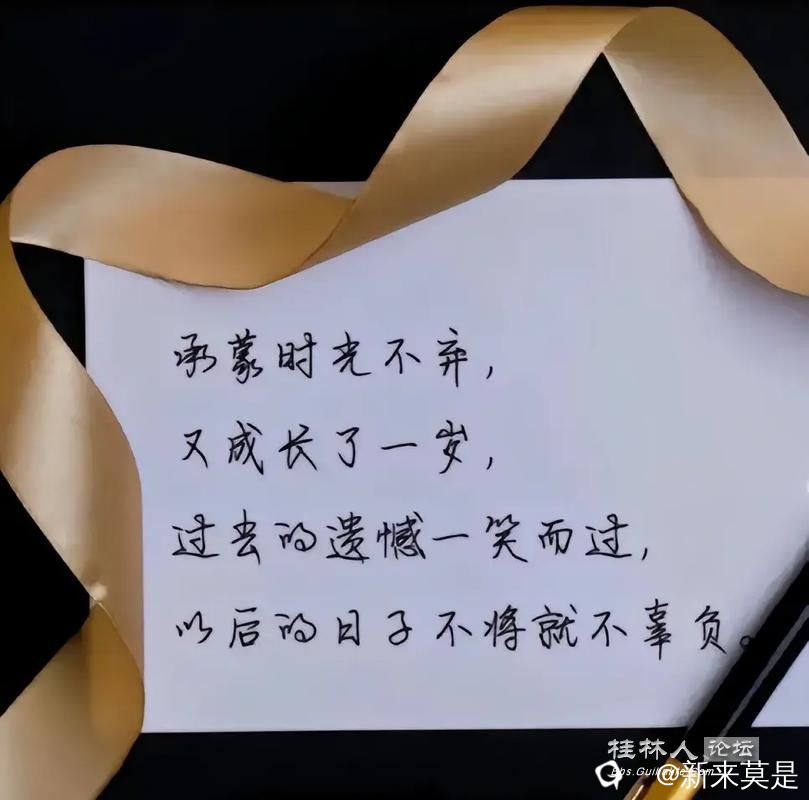 承蒙时光不弃，
又成长了一岁，
过去的遗憾一笑而过，
以后的日子不将就不辜负。
桂林人论坛
@新来莫是